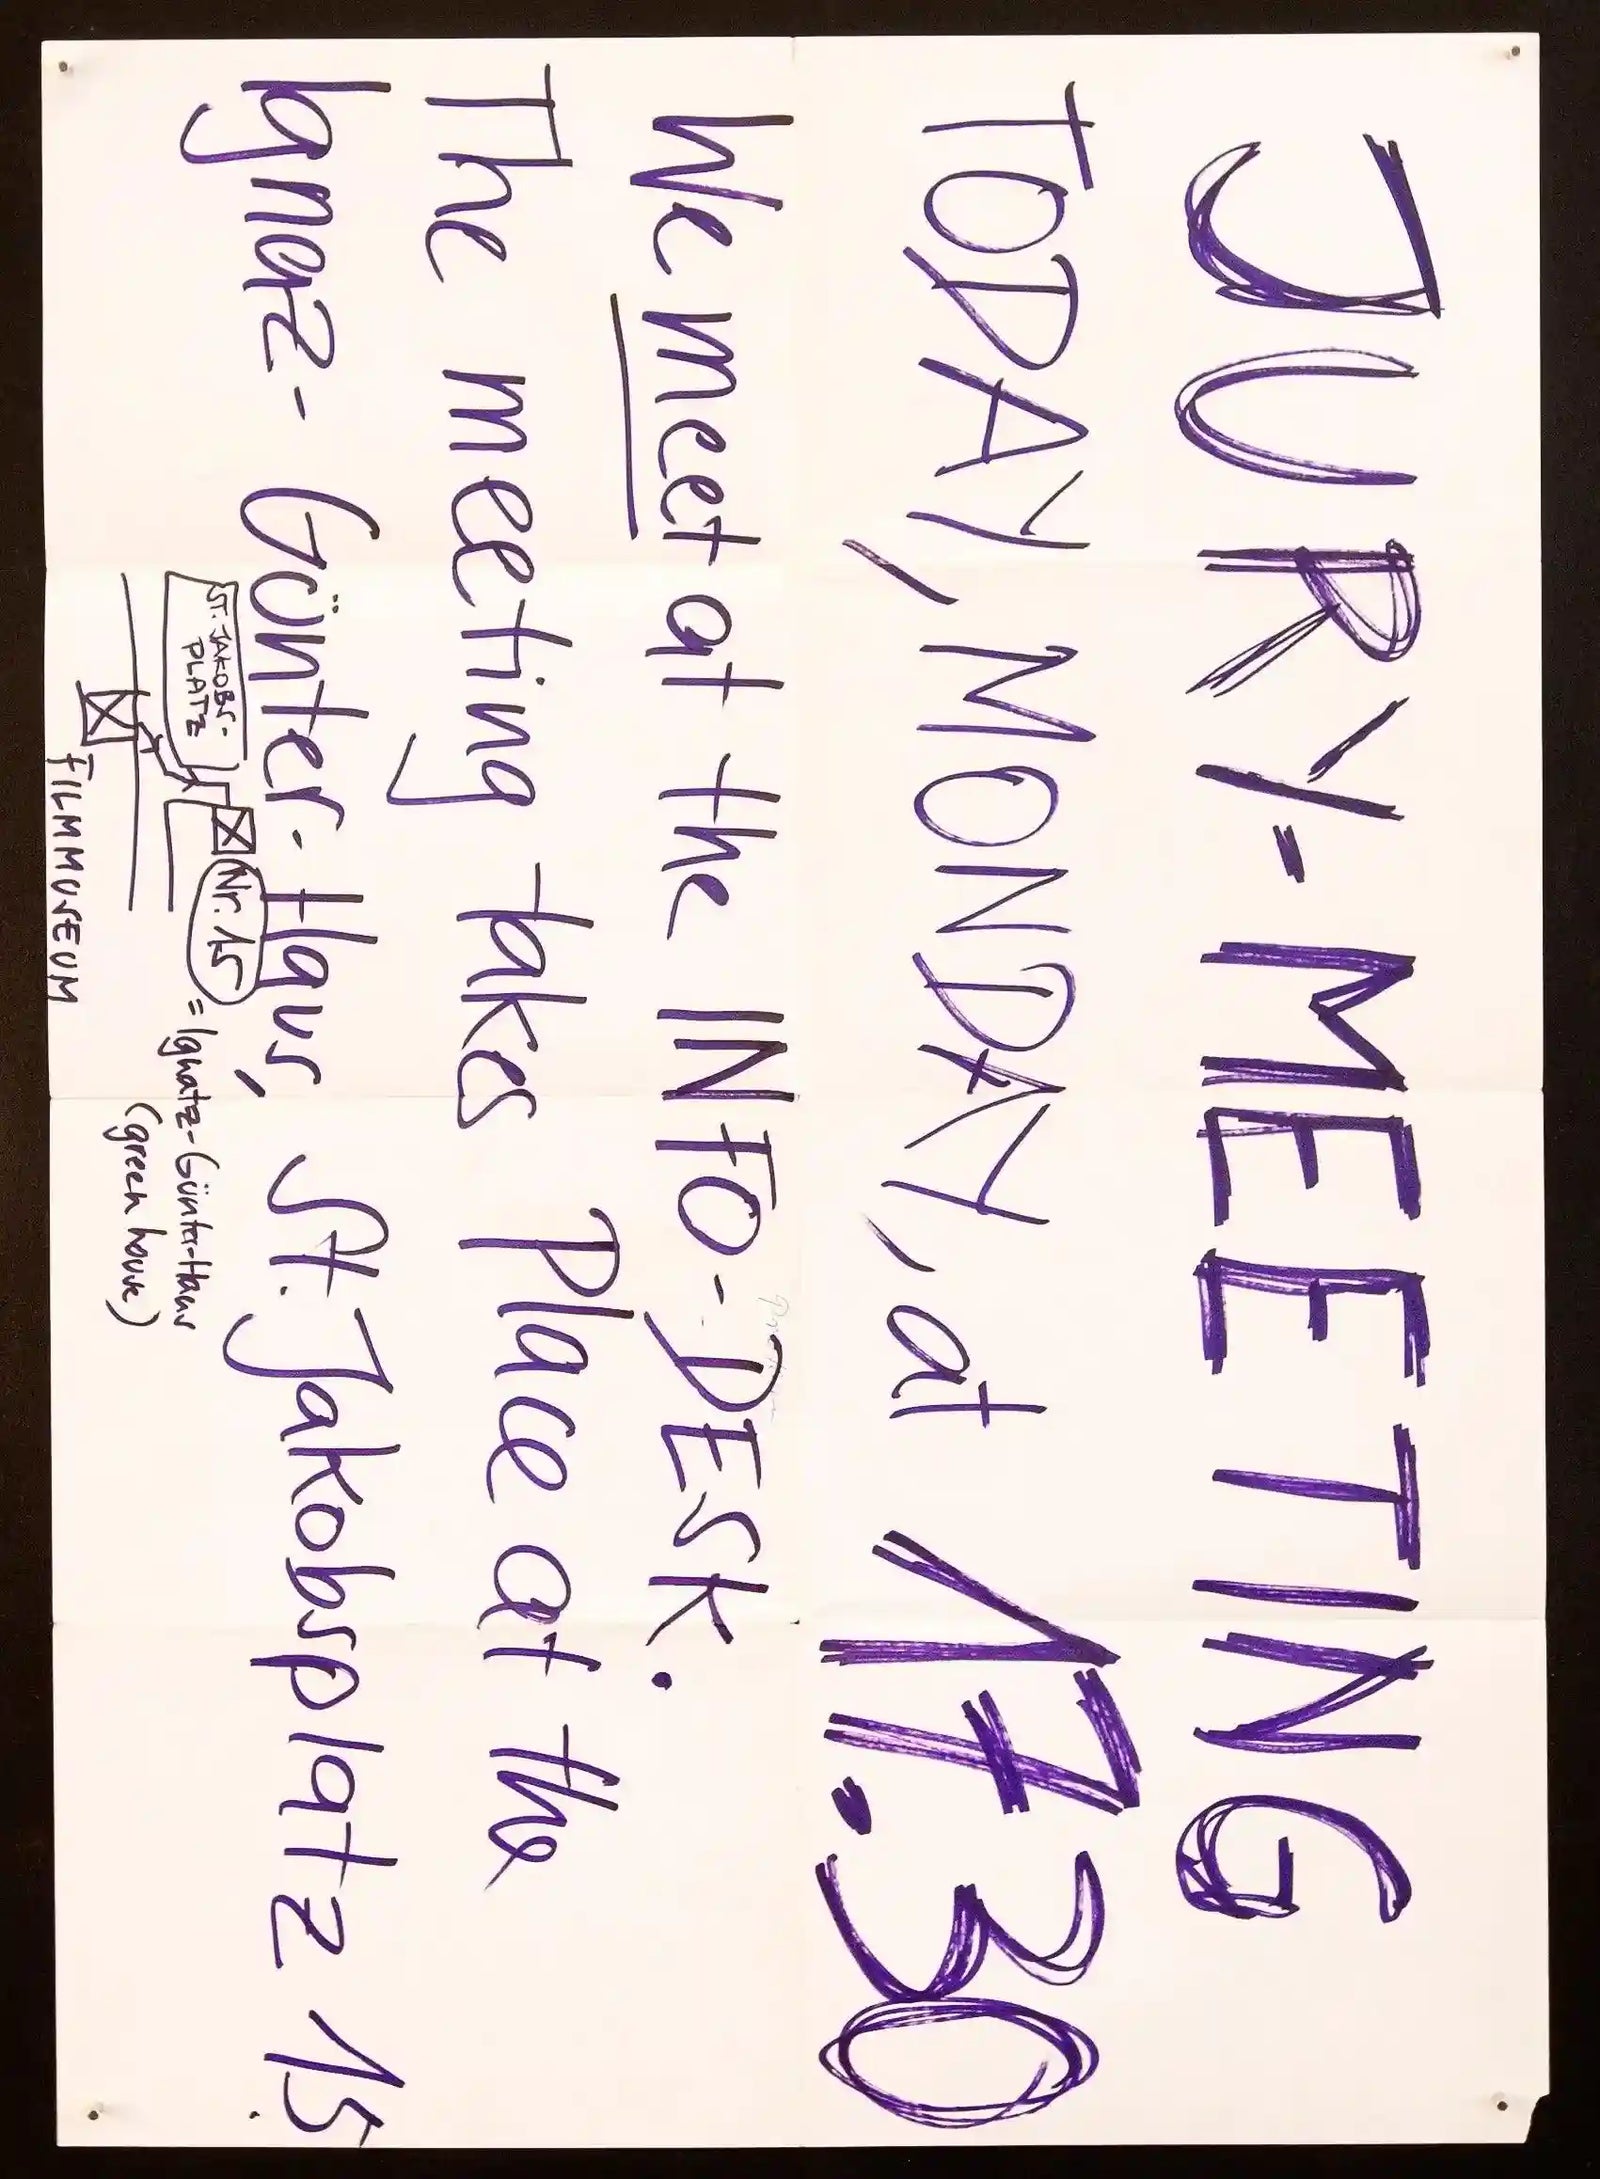 JURY-MEETING
TODAY, MONDAY, at 17.30
We meet at the INFO-DESK.
The meeting takes place at the
Ignaz-Günter-Haus, St. Jakobsplatz 15.
ST. JAKOBS-
PLATZ
Nr. 15
= Ignatz-Günter-Haus
(green house)
FILMMUSEUM